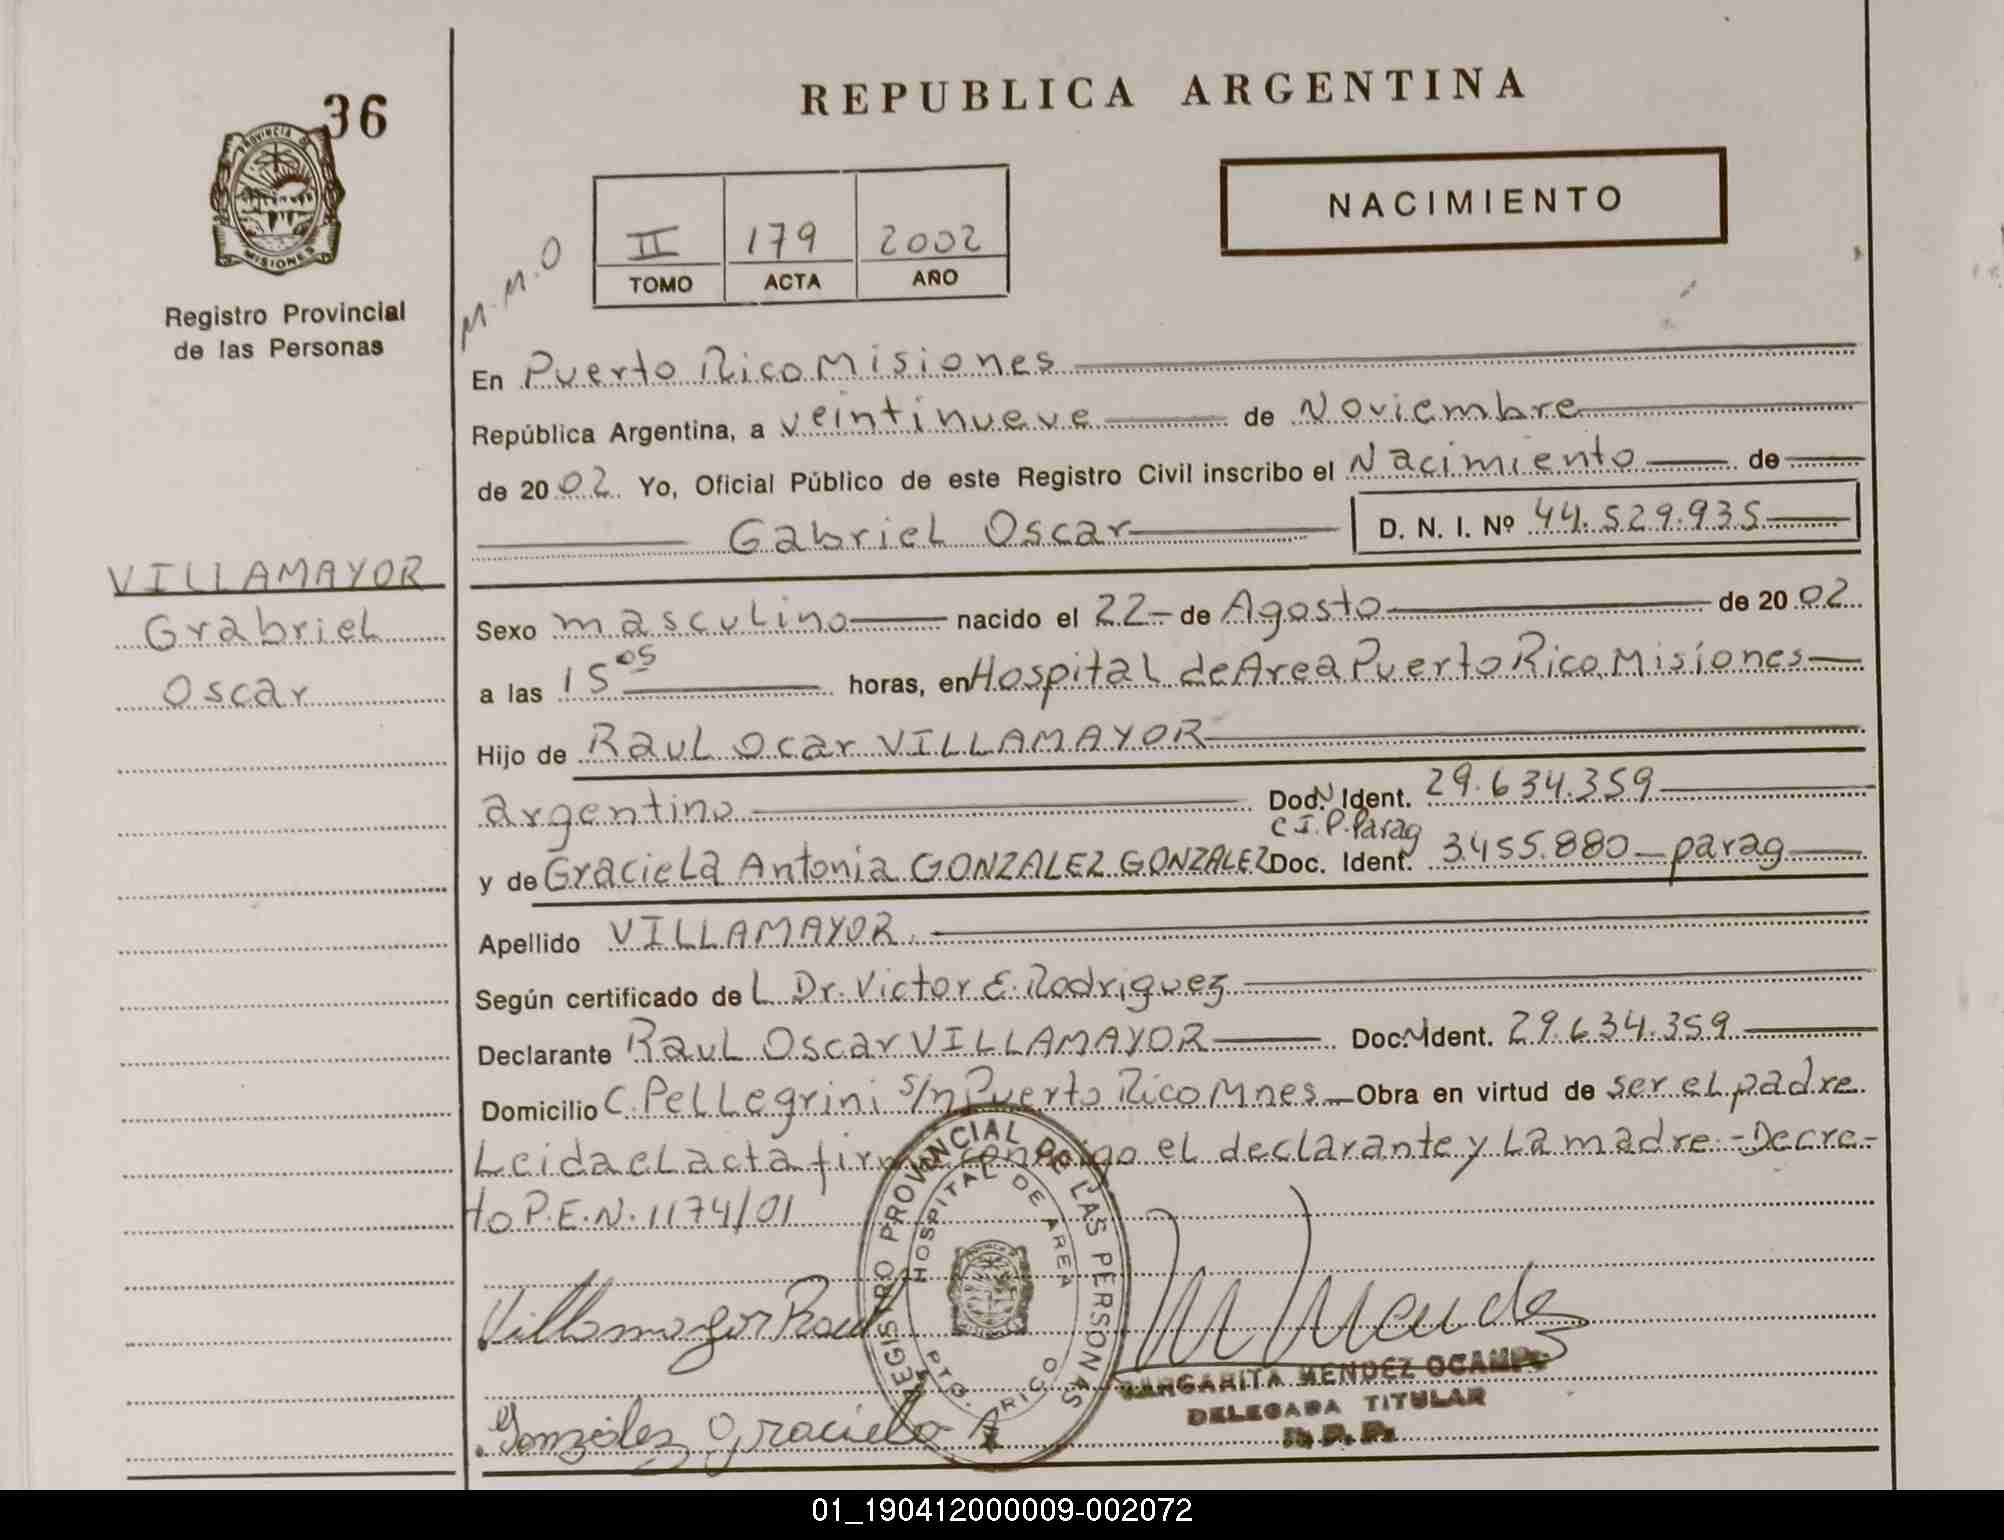 36
REPUBLICA ARGENTINA
PROVINCIA DE
MISIONES
Registro Provincial
de las Personas
NACIMIENTO
II 179 2002
TOMO ACTA AÑO
M.M.O
En Puerto Rico Misiones
República Argentina, a veintinueve de Noviembre
de 2002 Yo, Oficial Público de este Registro Civil inscribo el Nacimiento de
Gabriel Oscar D. N. I. Nº 44.529.935
VILLAMAYOR
Grabriel
Oscar
Sexo masculino nacido el 22- de Agosto de 2002
a las 15 05 horas, en Hospital de Area Puerto Rico Misiones
Hijo de Raul Ocar VILLAMAYOR
argentino Doc. N Ident. 29.634.359
C I. P. Parag
y de Graciela Antonia GONZALEZ GONZALEZ Doc. Ident. 3.455.880 - parag
Apellido VILLAMAYOR.
Según certificado de L Dr. Victor E. Rodriguez
Declarante Raul Oscar VILLAMAYOR Doc. N Ident. 29.634.359
Domicilio C. Pellegrini s/n Puerto Rico Mnes - Obra en virtud de ser el padre
Leida el acta firma conmigo el declarante y La madre - Decre-
to P.E.N. 1174/01
REGISTRO PROVINCIAL DE LAS PERSONAS
HOSPITAL DE AREA
PTO. RICO
Villamayor Raul
M Mendez
MARGARITA MENDEZ OCAMPO
DELEGADA TITULAR
R.P.P.
González Graciela A
01_190412000009-002072